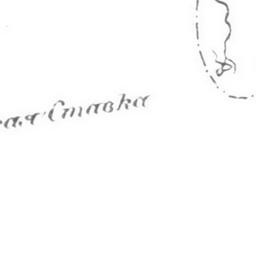 ая Ставка